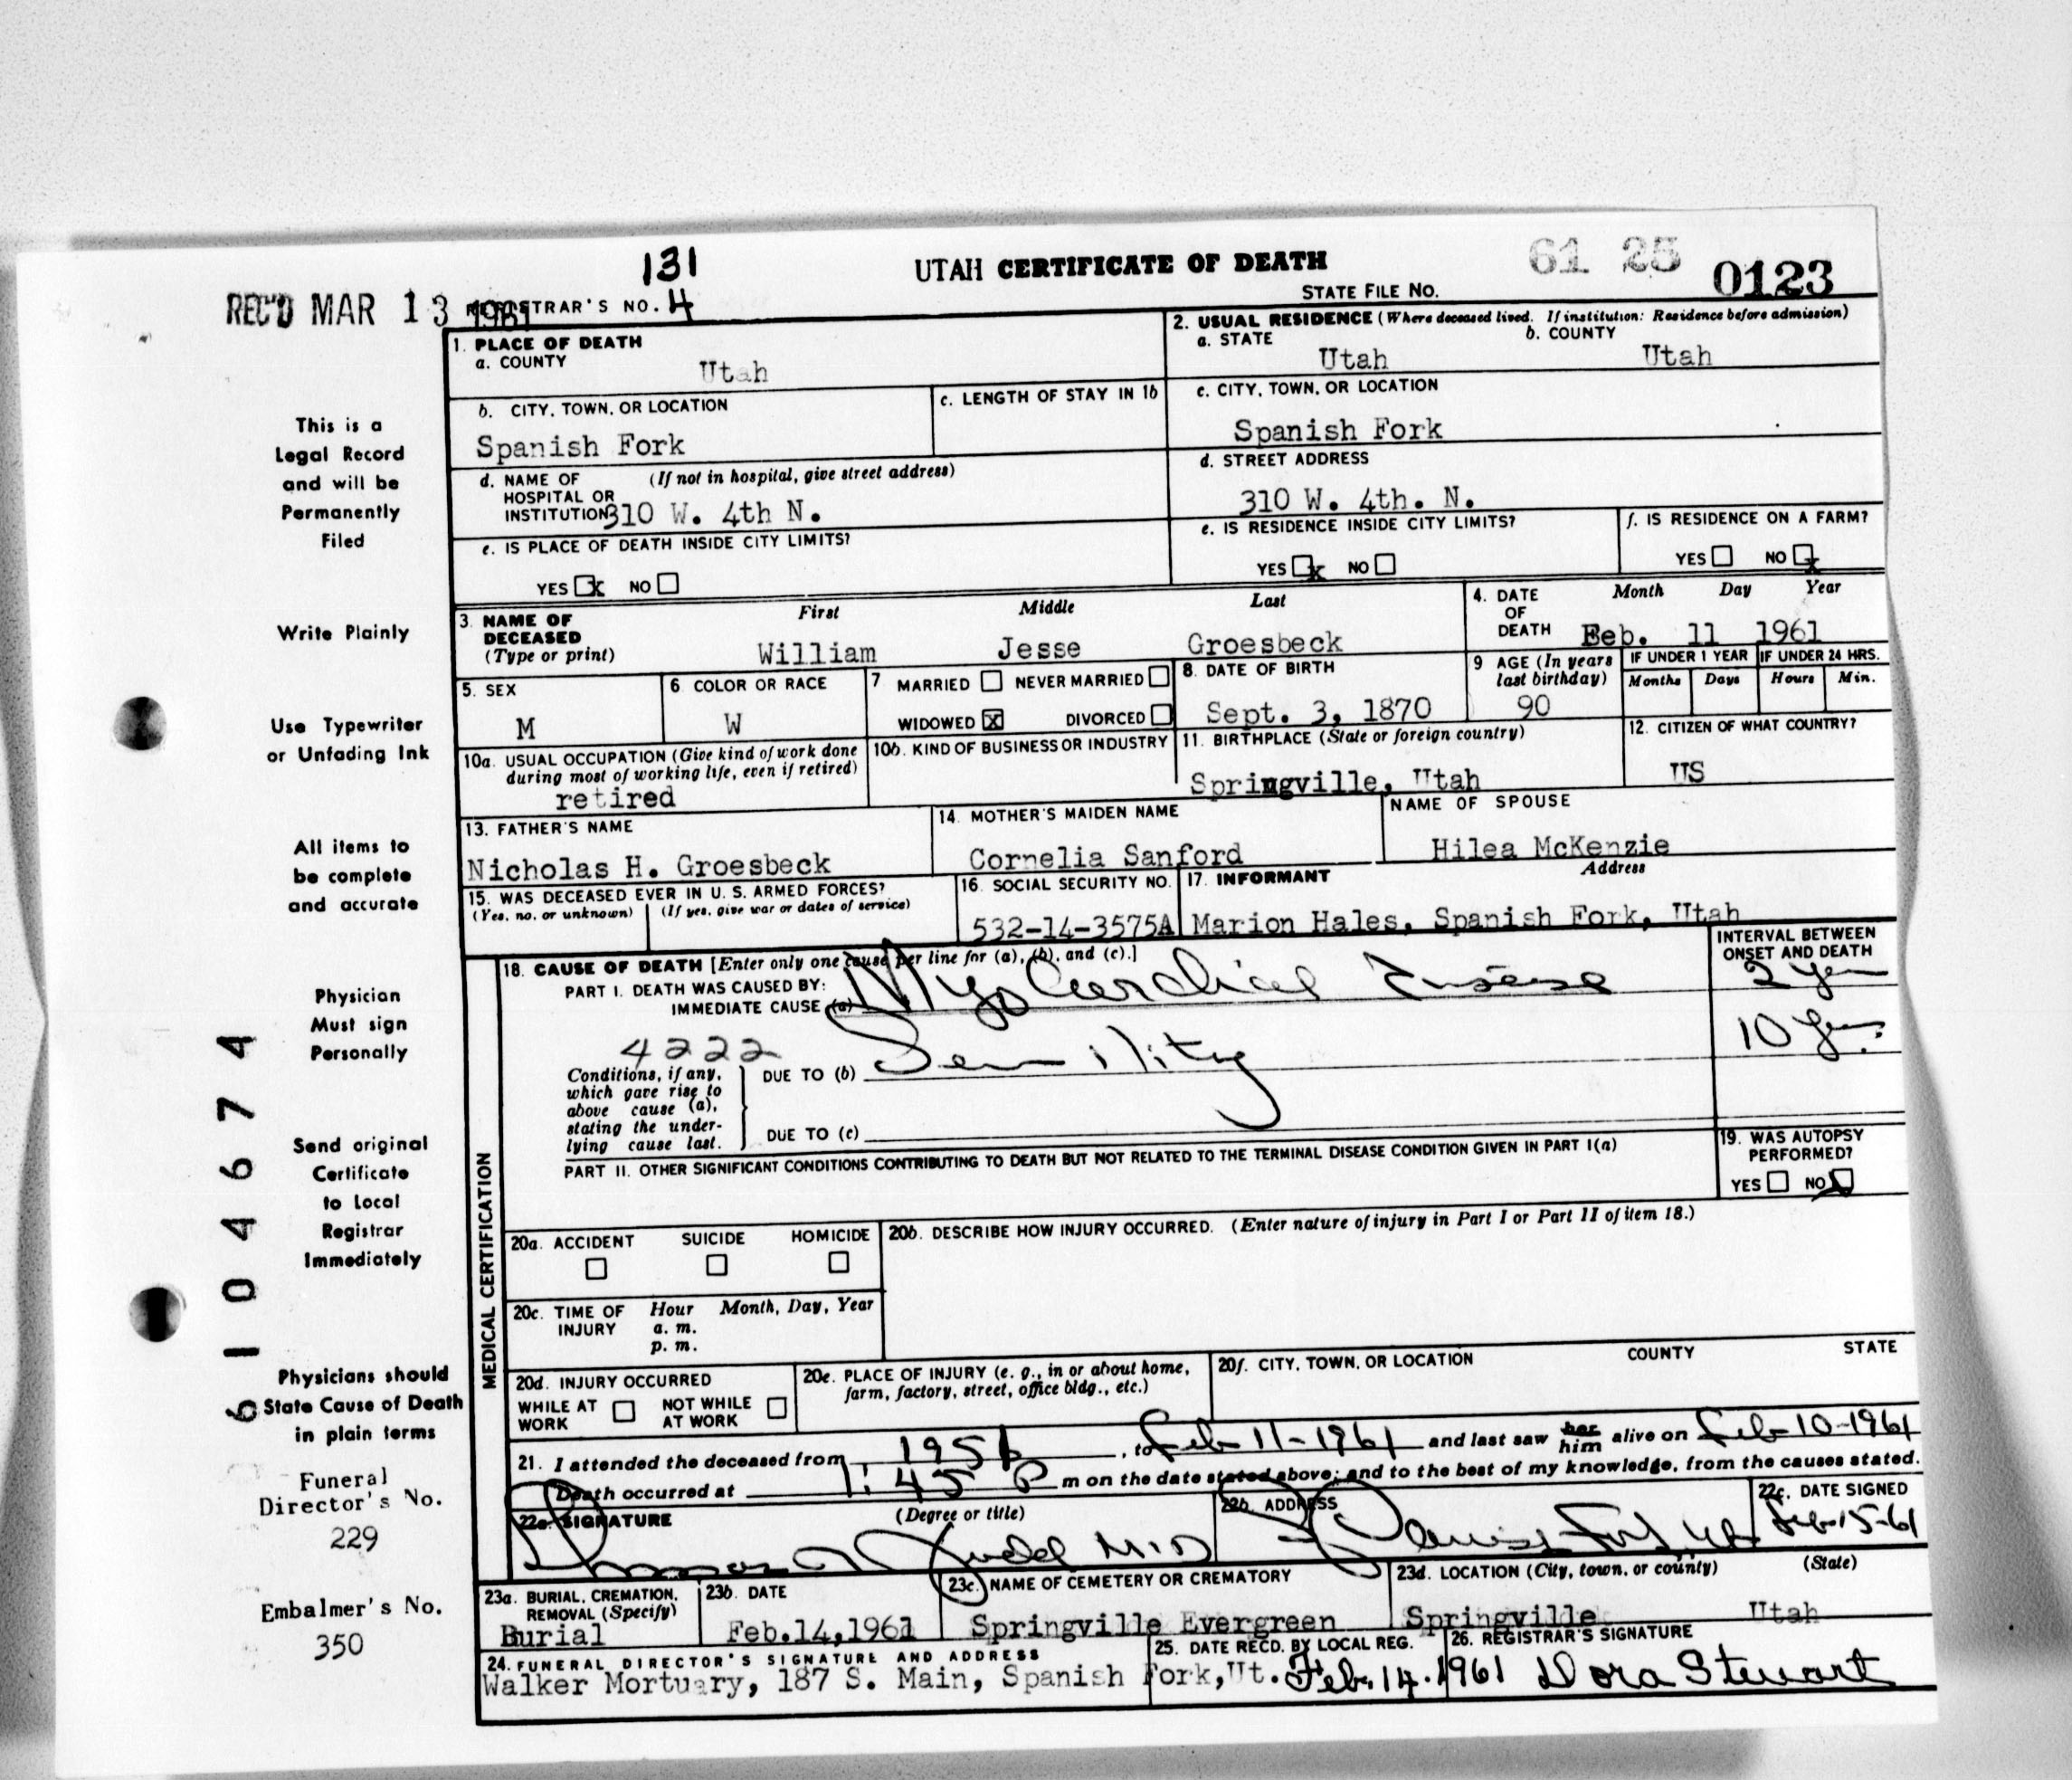 131
UTAH CERTIFICATE OF DEATH
61 25 0123
STATE FILE No.
REC'D MAR 13 1961
REGISTRAR'S NO. 4
1. PLACE OF DEATH
a. COUNTY
Utah
2. USUAL RESIDENCE (Where deceased lived. If institution: Residence before admission)
a. STATE
Utah
b. COUNTY
Utah
b. CITY, TOWN, OR LOCATION
Spanish Fork
c. LENGTH OF STAY IN 1b
c. CITY, TOWN, OR LOCATION
Spanish Fork
d. NAME OF HOSPITAL OR INSTITUTION
(If not in hospital, give street address)
310 W. 4th N.
d. STREET ADDRESS
310 W. 4th. N.
e. IS PLACE OF DEATH INSIDE CITY LIMITS?
YES x NO
e. IS RESIDENCE INSIDE CITY LIMITS?
YES x NO
f. IS RESIDENCE ON A FARM?
YES NO x
3. NAME OF DECEASED
(Type or print)
First Middle Last
William Jesse Groesbeck
4. DATE OF DEATH
Month Day Year
Feb. 11 1961
5. SEX
M
6. COLOR OR RACE
W
7 MARRIED NEVER MARRIED
WIDOWED x DIVORCED
8. DATE OF BIRTH
Sept. 3, 1870
9 AGE (In years last birthday)
90
IF UNDER 1 YEAR
Months Days
IF UNDER 24 HRS.
Hours Min.
10a. USUAL OCCUPATION (Give kind of work done during most of working life, even if retired)
retired
10b. KIND OF BUSINESS OR INDUSTRY
11. BIRTHPLACE (State or foreign country)
Springville, Utah
12. CITIZEN OF WHAT COUNTRY?
US
13. FATHER'S NAME
Nicholas H. Groesbeck
14. MOTHER'S MAIDEN NAME
Cornelia Sanford
NAME OF SPOUSE
Hilea McKenzie
15. WAS DECEASED EVER IN U. S. ARMED FORCES?
(Yes, no, or unknown) (If yes, give war or dates of service)
16. SOCIAL SECURITY NO.
532-14-3575A
17. INFORMANT Address
Marion Hales, Spanish Fork, Utah
MEDICAL CERTIFICATION
18. CAUSE OF DEATH [Enter only one cause per line for (a), (b), and (c).]
INTERVAL BETWEEN ONSET AND DEATH
PART I. DEATH WAS CAUSED BY:
IMMEDIATE CAUSE (a) Myocardial Disease
4222
Conditions, if any, which gave rise to above cause (a), stating the underlying cause last.
DUE TO (b) Senility
10 yrs.
DUE TO (c)
PART II. OTHER SIGNIFICANT CONDITIONS CONTRIBUTING TO DEATH BUT NOT RELATED TO THE TERMINAL DISEASE CONDITION GIVEN IN PART I(a)
19. WAS AUTOPSY PERFORMED?
YES NO x
20a. ACCIDENT SUICIDE HOMICIDE
20b. DESCRIBE HOW INJURY OCCURRED. (Enter nature of injury in Part I or Part II of item 18.)
20c. TIME OF INJURY
Hour Month, Day, Year
a. m.
p. m.
20d. INJURY OCCURRED
WHILE AT WORK NOT WHILE AT WORK
20e. PLACE OF INJURY (e. g., in or about home, farm, factory, street, office bldg., etc.)
20f. CITY, TOWN, OR LOCATION COUNTY STATE
21. I attended the deceased from , to Feb 11-1961 and last saw her him alive on Feb-10-1961
Death occurred at 1:45 P m on the date stated above; and to the best of my knowledge, from the causes stated.
22a. SIGNATURE (Degree or title)
Judd M.D
22b. ADDRESS
22c. DATE SIGNED
Feb-15-61
23a. BURIAL, CREMATION, REMOVAL (Specify)
Burial
23b. DATE
Feb.14,1961
23c. NAME OF CEMETERY OR CREMATORY
Springville Evergreen
23d. LOCATION (City, town, or county) (State)
Springville Utah
24. FUNERAL DIRECTOR'S SIGNATURE AND ADDRESS
Walker Mortuary, 187 S. Main, Spanish Fork, Ut.
25. DATE RECD. BY LOCAL REG.
Feb. 14. 1961
26. REGISTRAR'S SIGNATURE
Dora Stewart
This is a
Legal Record
and will be
Permanently
Filed
Write Plainly
Use Typewriter
or Unfading Ink
All items to
be complete
and accurate
Physician
Must sign
Personally
Send original
Certificate
to Local
Registrar
Immediately
Physicians should
State Cause of Death
in plain terms
Funeral
Director's No.
229
Embalmer's No.
350
6104674